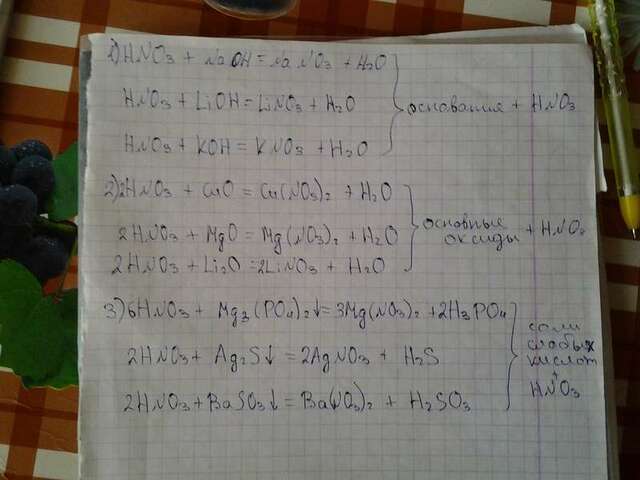 1) HNO3 + NaOH = NaNO3 + H2O
HNO3 + LiOH = LiNO3 + H2O
HNO3 + KOH = KNO3 + H2O
основания + HNO3
2) 2HNO3 + CuO = Cu(NO3)2 + H2O
2HNO3 + MgO = Mg(NO3)2 + H2O
2HNO3 + Li2O = 2LiNO3 + H2O
основные
оксиды + HNO3
3) 6HNO3 + Mg3(PO4)2↓ = 3Mg(NO3)2 + 2H3PO4
2HNO3 + Ag2S↓ = 2AgNO3 + H2S
2HNO3 + BaSO3↓ = Ba(NO3)2 + H2SO3
соли
слабых
кислот
+
HNO3